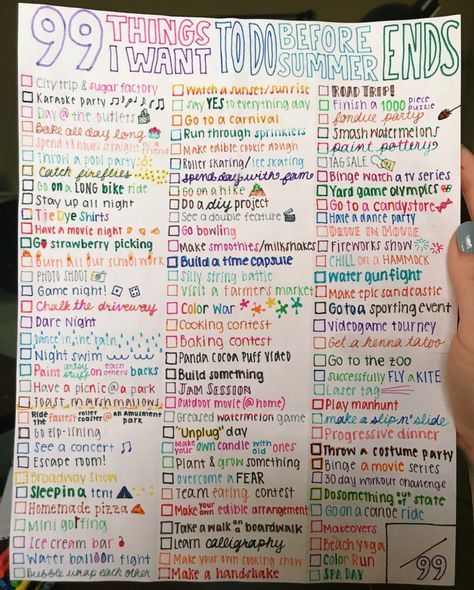 99 THINGS I WANT TO DO BEFORE SUMMER ENDS
City trip & sugar factory
Karaoke party
Day @ the outlets
Bake all day long
Spend 48 hours straight w/ a friend
Throw a pool party
Catch fireflies
Go on a LONG bike ride
Stay up all night
Tie Dye Shirts
Have a movie night
Go strawberry picking
Burn all our school work
PHOTO SHOOT
Game night!
Chalk the driveway
Dare Night
Dance in the rain
Night swim
Paint artsy stuff on each others backs
Have a picnic @ a park
Toast marshmallows
Ride the fastest roller coaster @ an amusement park
Go zip-lining
See a concert
Escape room!
Broadway Show
Sleep in a tent
Homemade pizza
Mini golfing
Ice cream bar
Water balloon fight
Bubble wrap each other
Watch a sunset/sunrise
say YES to everything day
Go to a carnival
Run through sprinklers
Make edible cookie dough
Roller skating/ice skating
spend day with fam
Go on a hike
Do a diy project
See a double feature
Go bowling
Make smoothies/milkshakes
Build a time capsule
Silly string battle
Visit a farmers market
Color War
Cooking contest
Baking contest
Panda Cocoa Puff Video
Build something
JAM SESSION
Outdoor movie (@ home)
Greased watermelon game
"Unplug" day
Make your own candle with old ones
Plant & grow something
overcome a FEAR
Team eating contest
Make your own edible arrangement
Take a walk on a boardwalk
Learn calligraphy
Make your own cooking show
Make a handshake
ROAD TRIP!
Finish a 1000 piece puzzle
fondue party
Smash watermelons
paint pottery
TAG SALE
Binge watch a tv series
Yard game olympics
Go to a candystore
Have a dance party
DRIVE IN MOVIE
Fireworks show
CHILL on a HAMMOCK
Water gun fight
Make epic sandcastle
Go to a sporting event
Videogame tourney
Get a henna tatoo
Go to the zoo
successfully FLY a KITE
Laser tag
Play manhunt
make a slip n' slide
Progressive dinner
Throw a costume party
Binge a movie series
30 day workout challenge
Do something out of state
Go on a canoe ride
Makeovers
Beach yoga
Color Run
SPA DAY
/99